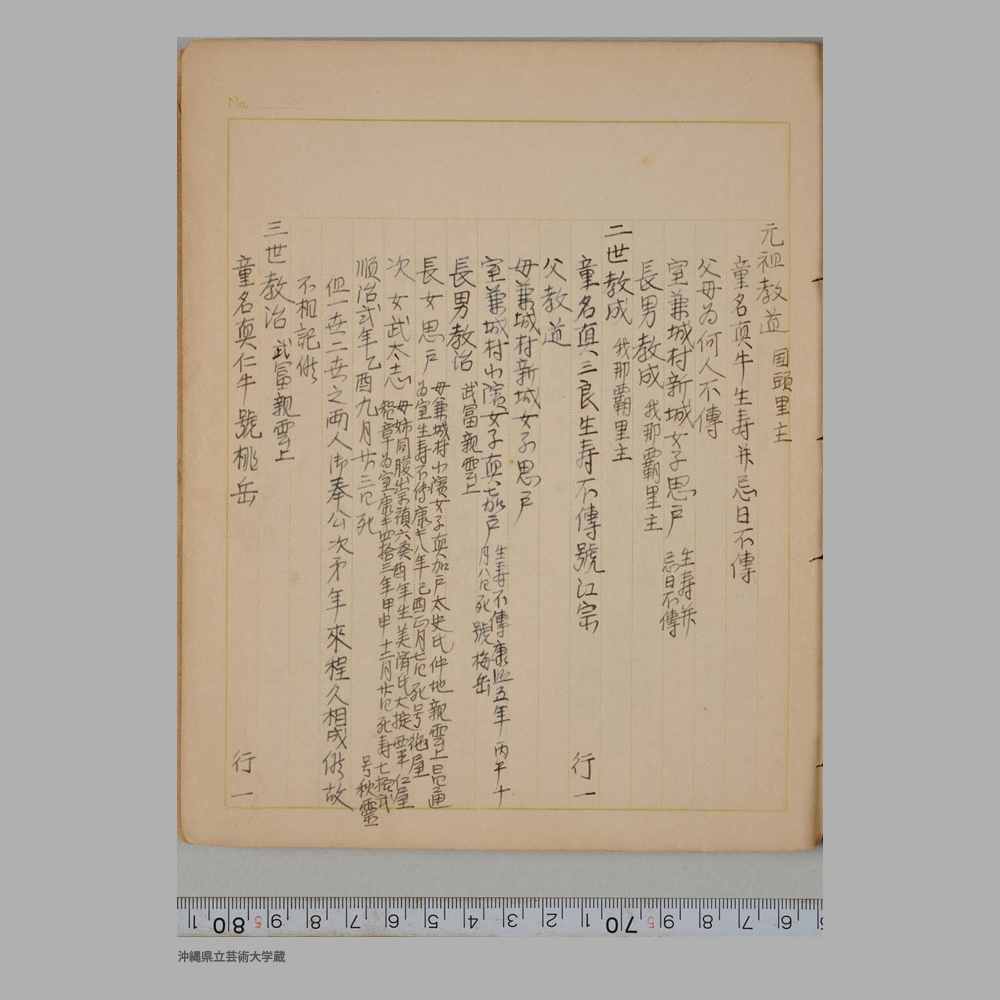 No.
元祖教道 国頭里主
童名真牛生寿并忌日不傳
父母為何人不傳
室兼城村新城女子思戸 生寿并
忌日不傳
長男教成 我那覇里主
二世教成 我那覇里主
童名真三良生寿不傳號江宗 行一
父教道
母兼城村新城女子思戸
室兼城村小濱女子真加戸 生寿不傳康熙五年丙午十
月八日死號梅岳
長男教治 武富親雲上
長女思戸 母兼城村小濱女子真加戸太史氏仲地親雲上昌通
為室生寿不傳康熙八年己酉正月七日死号
次女武太志 母姉同腹崇禎六癸酉年生美済氏大掟
為室康熙四拾三年甲申十二月廿日死寿七拾弐
号秋霊
順治弐年乙酉九月廿三日死
但一世二世之両人御奉公次㐧年來程久相成候故
不相記候
三世教治 武富親雲上
童名真仁牛 號桃岳 行一
10 80 5 9 8 7 6 5 4 3 2 1 70 5 9 8 7 6
沖縄県立芸術大学蔵